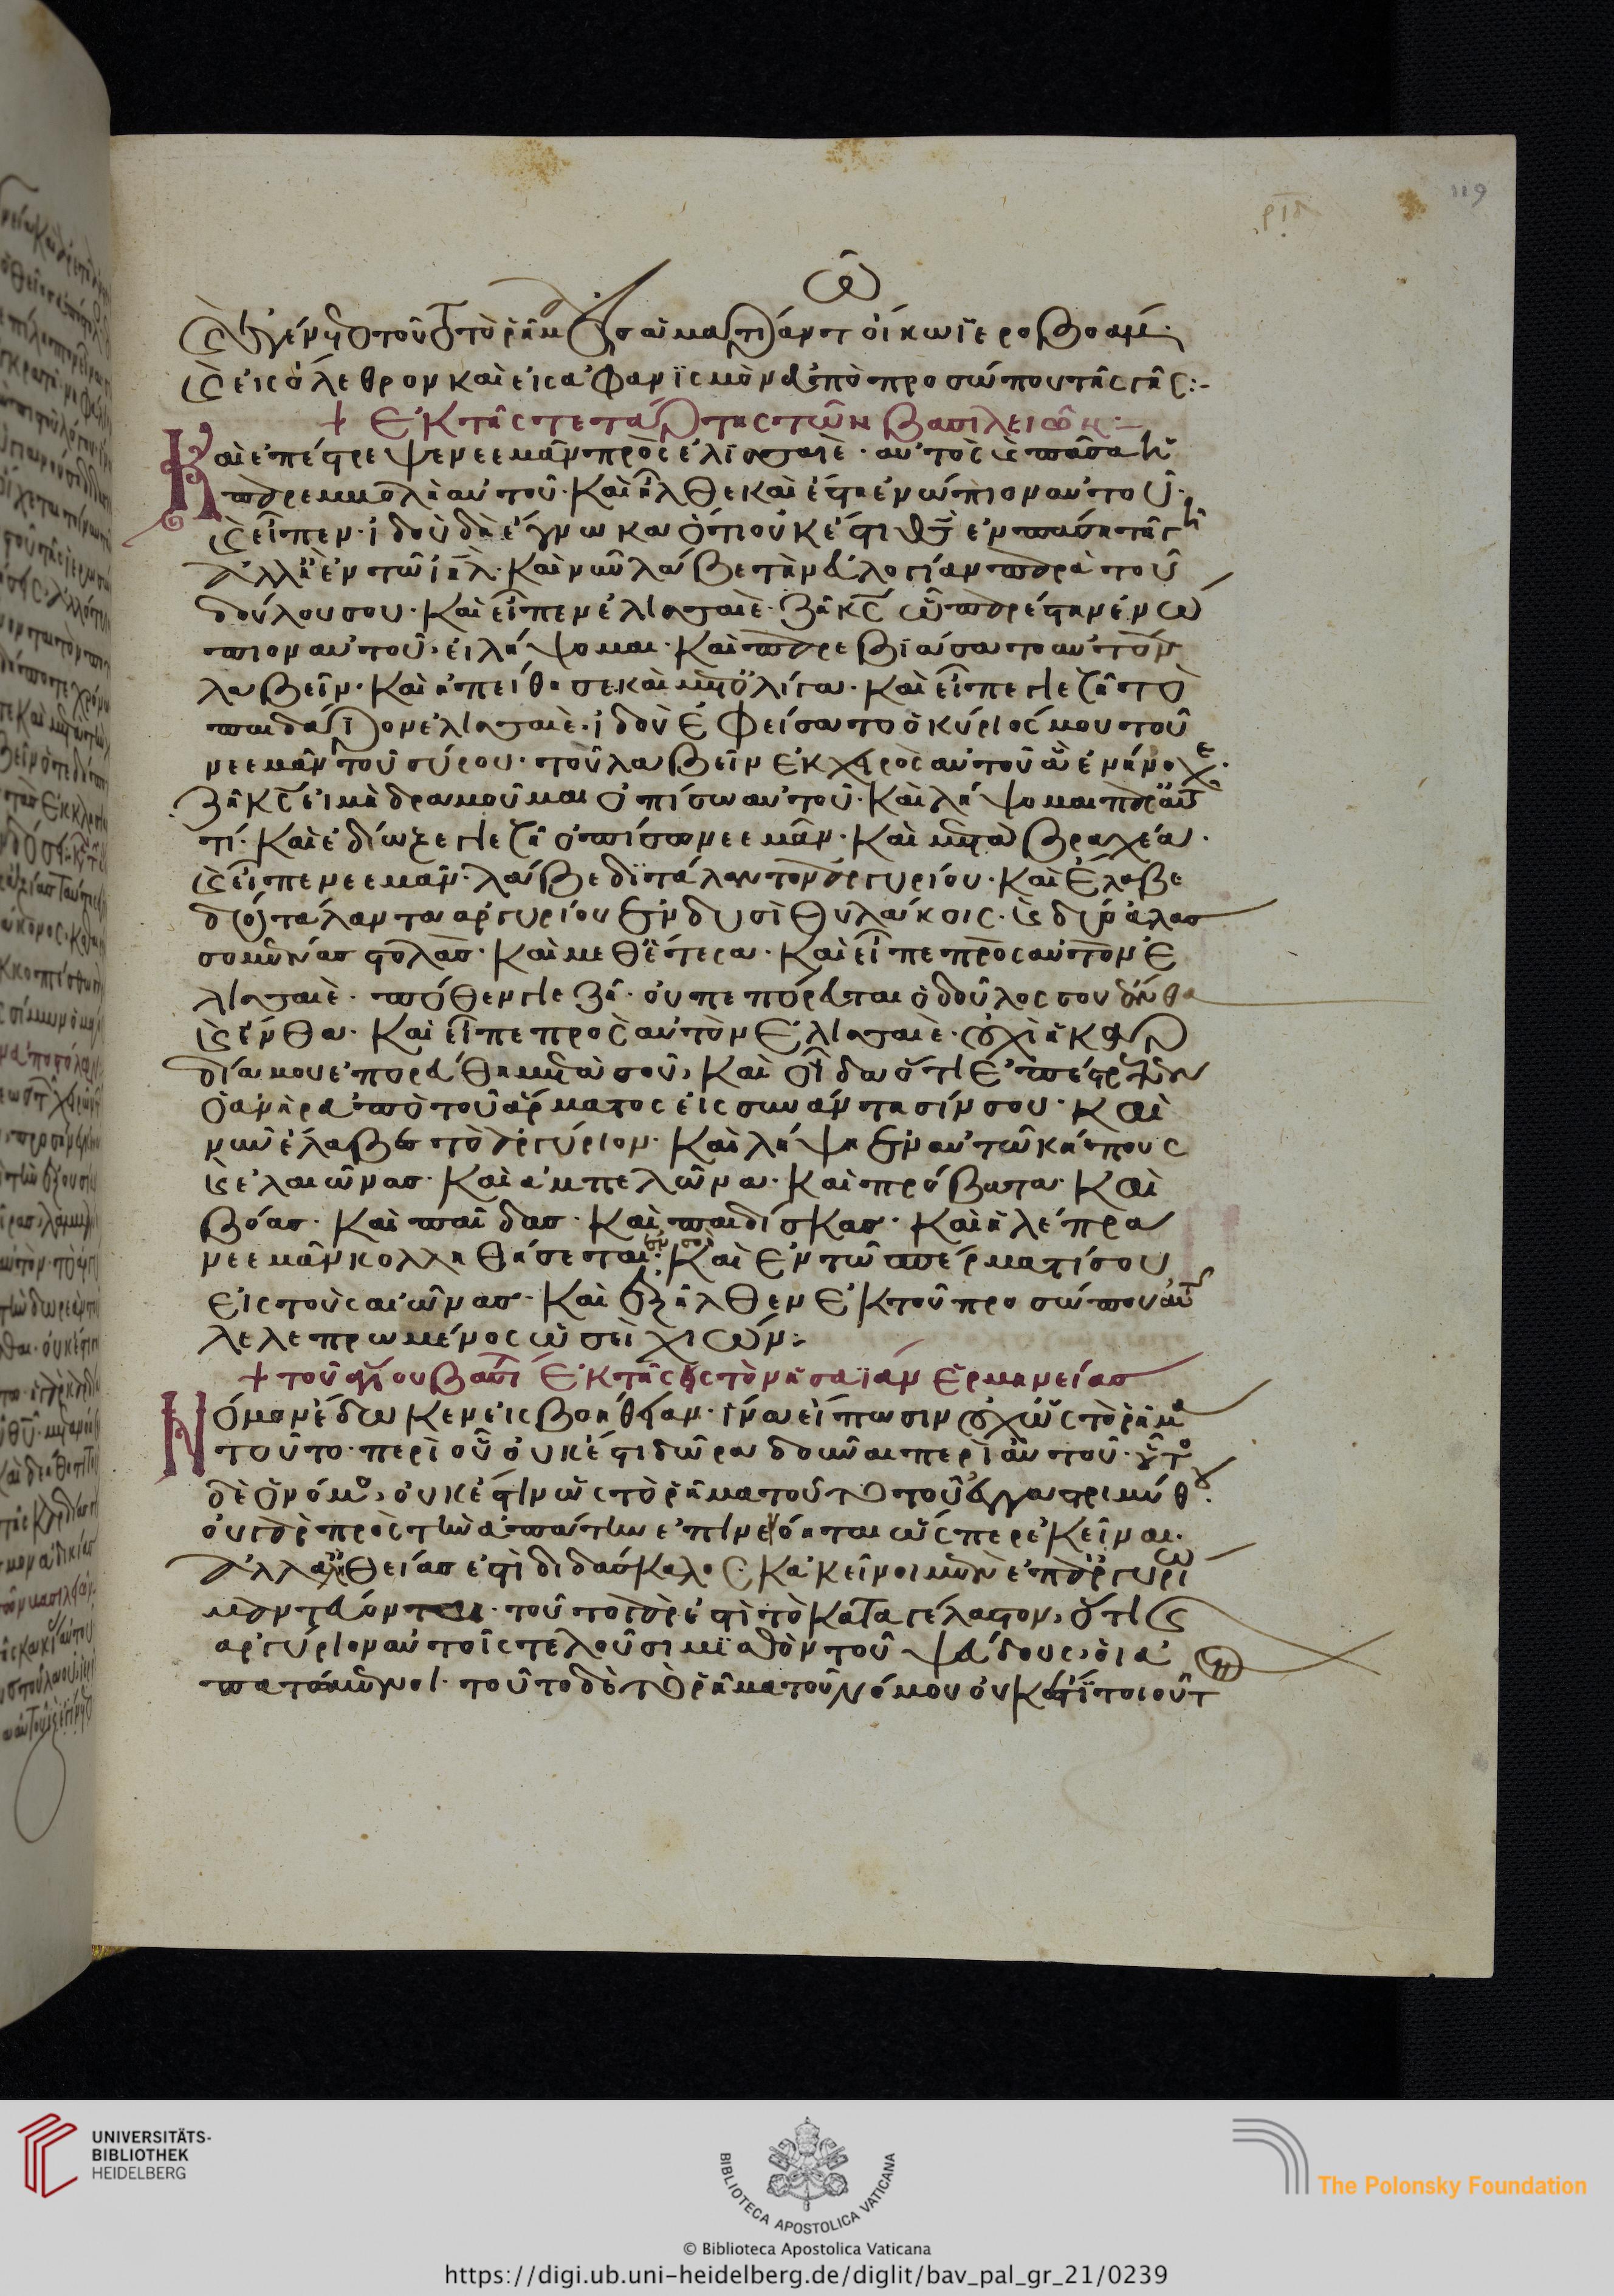 119
ριδ
ῶ
καὶ ἐγένετο τοῦτο τὸ ῥῆμα εἰς ἁμαρτίαν τῶ οἴκω ἱεροβοάμ.
καὶ εἰς ὄλεθρον καὶ εἰς ἀφανισμὸν ἀπὸ προσώπου τῆς γῆς:-
+ ἐκ τῆς τετάρτης τῶν βασιλειῶν:-
Καὶ ἐπέστρεψε νεεμὰν πρὸς ἐλισσαιὲ. αὐτὸς καὶ πᾶσα ἡ
παρεμβολὴ αὐτοῦ. καὶ ἦλθε καὶ ἔστη ἐνώπιον αὐτοῦ.
καὶ εἶπεν. ἰδοὺ δὴ ἔγνωκα ὅτι οὐκ ἔστι θς ἐν πάση τῆ γῆ
ἀλλ' ἢ ἐν τῶ ιηλ. καὶ νῦν λάβε τὴν εὐλογίαν παρὰ τοῦ
δούλου σου. καὶ εἶπεν ἐλισσαιὲ. ζῆ κς ὧ παρέστην ἐνώ
πιον αὐτοῦ. εἰ λήψομαι. καὶ παρεβιάσατο αὐτὸν
λαβεῖν. καὶ ἠπείθησε. καὶ μετ' ὀλίγα. καὶ εἶπε γιεζῆ τὸ
παιδάριον ἐλισσαιὲ. ἰδοὺ ἐφείσατο ὁ κύριός μου τοῦ
νεεμὰν τοῦ σύρου. τοῦ λαβεῖν ἐκ χειρὸς αὐτοῦ ἃ ἐνήνοχε.
ζῆ κς εἰ μὴ δραμοῦμαι ὀπίσω αὐτοῦ. καὶ λήψομαι παρ' αὐτοῦ
τί. καὶ ἐδίωξε γιεζῆ ὀπίσω νεεμὰν. καὶ μετὰ βραχέα.
καὶ εἶπε νεεμὰν. λάβε διτάλαντον ἀργυρίου. καὶ ἔλαβε
δύο τάλαντα ἀργυρίου ἐν δυσὶ θυλάκοις. καὶ δύο ἀλλασ
σομένας στολὰς. καὶ μεθ' ἕτερα. καὶ εἶπε πρὸς αὐτὸν ἐ
λισσαιὲ. πόθεν γιεζῆ. οὐ πεπόρευται ὁ δοῦλος σου ἔνθα
καὶ ἔνθα. καὶ εἶπε πρὸς αὐτὸν ἐλισσαιὲ. οὐχὶ ἡ καρ
δία μου ἐπορεύθη μετὰ σοῦ, καὶ οἶδα ὅτι ἐπέστρεψεν
ὁ ἀνὴρ ἀπὸ τοῦ ἅρματος εἰς συνάντησίν σου. καὶ
νῦν ἔλαβες τὸ ἀργύριον. καὶ λήψη ἐν αὐτῶ κήπους
καὶ ἐλαιῶνας. καὶ ἀμπελῶνα. καὶ πρόβατα. καὶ
βόας. καὶ παῖδας. καὶ παιδίσκας. καὶ ἡ λέπρα
νεεμὰν κολληθήσεται ἐν σοὶ. καὶ ἐν τῶ σπέρματί σου
εἰς τοὺς αἰῶνας. καὶ ἐξῆλθεν ἐκ τοῦ προσώπου αὐτοῦ
λελεπρωμένος ὡσεὶ χιών:-
+ τοῦ ἁγίου βασιλείου ἐκ τῆς εἰς τὸν ἠσαΐαν ἑρμηνείας
Νόμον ἔδωκεν εἰς βοήθειαν. ἵνα εἴπωσιν οὐχ ὡς τὸ ῥῆμα
τοῦτο. περὶ οὗ οὐκ ἔστι δῶρα δοῦναι περὶ αὐτοῦ.
δὲ ὁ νόμος, οὐκ ἔστιν ὡς τὸ ῥῆμα τοῦτο τοῦ ἐγγαστριμύθου.
οὐ γὰρ πρὸς τὴν ἀπάτην ἐπινενόηται ὥσπερ ἐκεῖναι.
ἀλλ' ἀληθείας ἐστὶ διδάσκαλος. κἀκεῖνοι μὲν ἐπ' ἀργυρίω
μαντεύονται. τοῦτο γάρ ἐστι τὸ καταγέλαστον, ὅτι καὶ
ἀργύριον αὐτοῖς τελοῦσι μισθὸν τοῦ ψεύδους, οἱ ἀ
πατώμενοι. τοῦτο δὲ τὸ ῥῆμα τοῦ νόμου οὐκ ἔστι τοιοῦτ
UNIVERSITÄTS-
BIBLIOTHEK
HEIDELBERG
BIBLIOTECA APOSTOLICA VATICANA
The Polonsky Foundation
© Biblioteca Apostolica Vaticana
https://digi.ub.uni-heidelberg.de/diglit/bav_pal_gr_21/0239